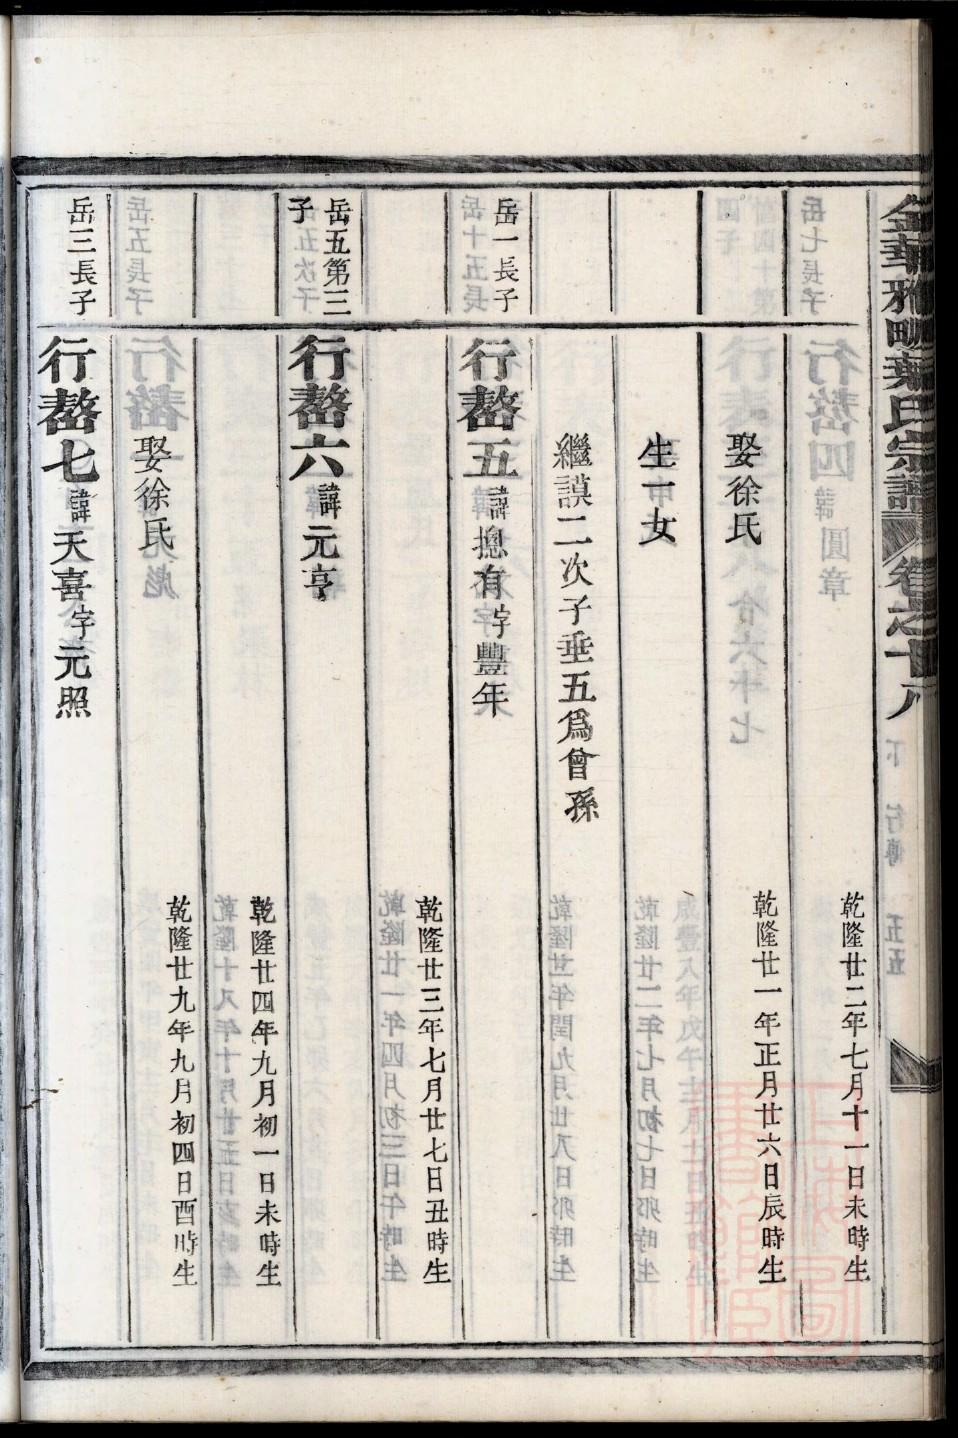 金華雅畈葉氏宗譜 卷之廿八
乾隆廿二年七月十一日未時生
娶徐氏
乾隆廿一年正月廿六日辰時生
生一女
繼謨二次子垂五爲曾孫
岳一長子
行嶅五諱摠有字豐年
乾隆廿三年七月廿七日丑時生
岳五第三子
行嶅六諱元亨
乾隆廿四年九月初一日未時生
娶徐氏
乾隆廿九年九月初四日酉時生
岳三長子
行嶅七諱天喜字元照